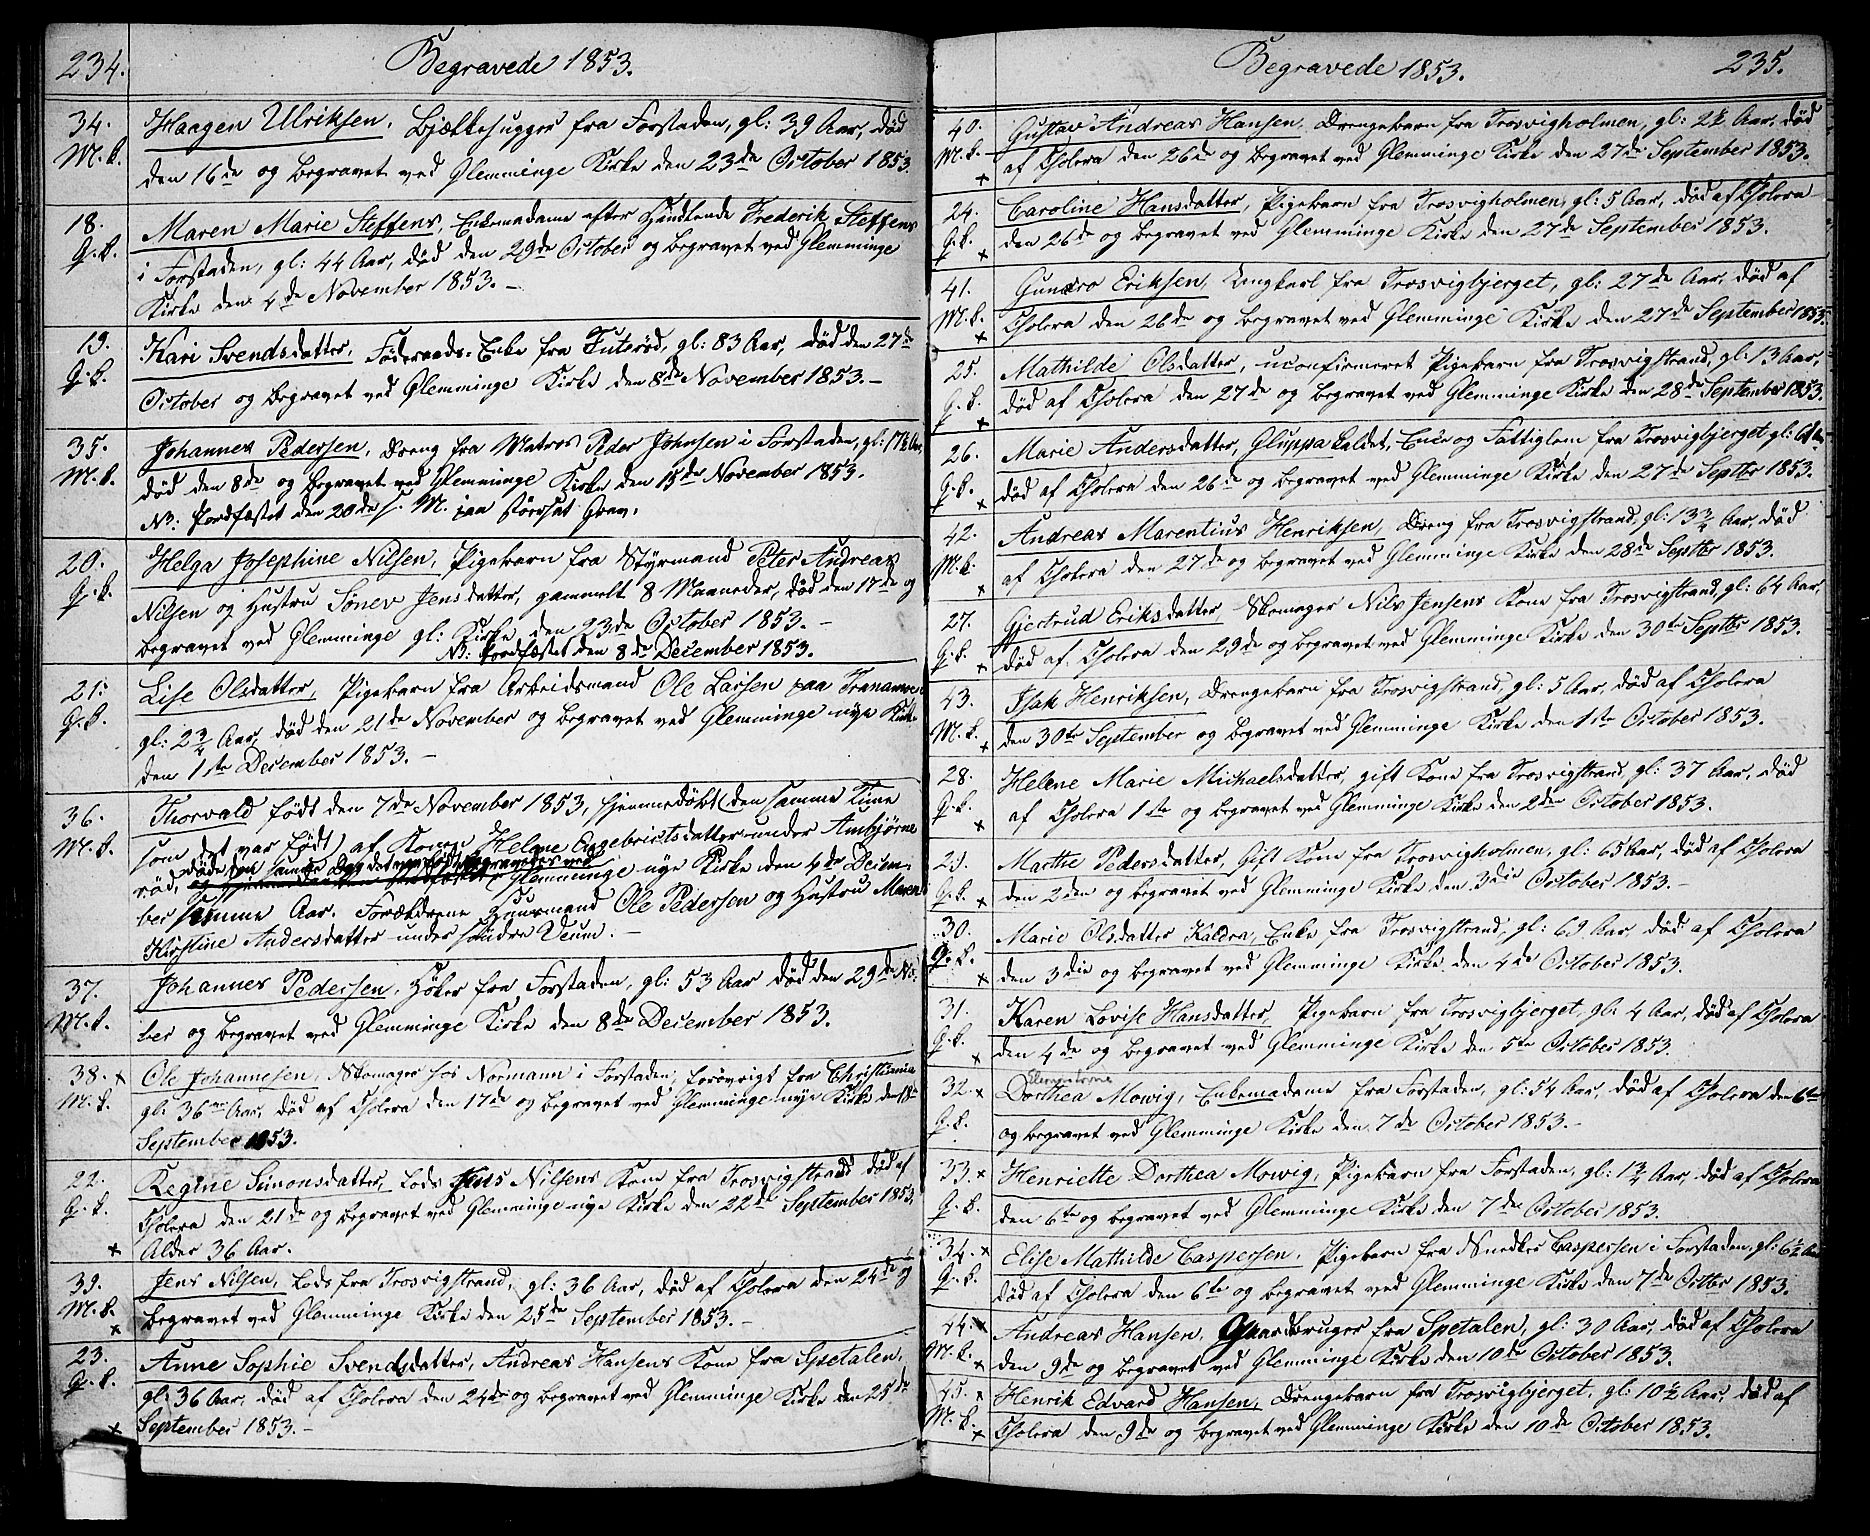 234.
Begravede 1853.
34. Haagen Ulriksen, Bjælkehugger fra Forstaden, gl: 39 Aar, død
M.k. den 16de og begravet ved Glemminge Kirke den 23de October 1853.
18. Maren Marie Steffens, Enkemadame efter Handlende Frederik Steffens
Q.k. i Forstaden, gl: 44 Aar, død den 29de October og begravet ved Glemminge
Kirke den 4de November 1853. –
19. Kari Svendsdatter, Føderaads-Enke fra Tuterød, gl: 83 Aar, død den 27de
Q.k. October og begravet ved Glemminge Kirke den 8de November 1853. –
35. Johannes Pedersen, Dreng fra Matros Peder Johnsen i Forstaden, gl: 17½ Aar,
M.k. død den 8de og begravet ved Glemminge Kirke den 15de November 1853.
NB: Jordfæstet den 20de s. M. paa Grav.
20. Helga Josephine Nilsen, Pigebarn fra Styrmand Peter Andreas
Q.k. Nilsen og Hustru Sønev Jensdatter, gammelt 8 Maaneder, død den 17de og
begravet ved Glemminge gl: Kirke den 23de October 1853. –
NB: Jordfæstet den 8de December 1853.
21. Lise Olsdatter, Pigebarn fra Arbeidsmand Ole Larsen paa
Q.k. gl: 2¾ Aar, død den 21de November og begravet ved Glemminge nye Kirke
den 1ste December 1853. –
36. Thorvald født den 7de November 1853, hjemmedøbt (den samme Time
M.k. som det var født) af Konen Helene Engebretsdatter under Ambjørns
døde den samme Dag det var født begravedes ved
rød, Glemminge nye Kirke den 4de Decem-
ber samme Aar. Forældrene Huusmand Ole Pedersen og Hustru Maren
Kirstine Andersdatter under søndre Veum. –
37. Johannes Pedersen, Høker fra Forstaden, gl: 53 Aar død den 29de No:
M.k. ber og begravet ved Glemminge Kirke den 8de December 1853.
38. x Ole Johannesen, Skomager hos Normann i Forstaden, forøvrigt fra Christiania
M.k. gl: 36 Aar, død af Cholera den 17de og begravet ved Glemminge nye Kirke den 18de
September 1853.
22. Regine Simonsdatter, Lods Jens Nilsens Kone fra Trosvigstrand død af
Q.k. Cholera den 21de og begravet ved Glemminge nye Kirke den 22de September 1853,
x Alder 36 Aar.
39. Jens Nilsen, Lods fra Trosvigstrand, gl: 36 Aar, død af Cholera den 24de og
M.k. x begravet ved Glemminge Kirke den 25de September 1853. –
23. Anne Sophie Svendsdatter, Andreas Hansens Kone fra Spetalen,
Q.k. gl: 36 Aar, død af Cholera den 24de og begravet ved Glemminge Kirke den 25de
x September 1853. –
Begravede 1853.
235.
40. Gustav Andreas Hansen, Drengebarn fra Trosvigholmen, gl: 2½ Aar, død
M.k. x af Cholera den 26de og begravet ved Glemminge Kirke den 27de September 1853.
24. Caroline Hansdatter, Pigebarn fra Trosvigholmen, gl: 5 Aar, død af Cholera
Q.k. x den 26de og begravet ved Glemminge Kirke den 27de September 1853.
41. Gunero Eriksen, Ungkarl fra Trosvigbjerget, gl: 27de Aar, død af
M.k. x Cholera den 26de og begravet ved Glemminge Kirke den 27de September 1853.
25. Mathilde Olsdatter, uconfirmeret Pigebarn fra Trosvigstrand, gl: 13 Aar,
Q.k. x død af Cholera den 27de og begravet ved Glemminge Kirke den 28de September 1853.
26. Marie Andersdatter, Gluppa kaldet, Enke og Fattiglem fra Trosvigbjerget gl:
Q.k. x død af Cholera den 26de og begravet ved Glemminge Kirke den 27de Septbr 1853.
42. Andreas Marentius Henriksen, Dreng fra Trosvigstrand, gl: 13¾ Aar, død
M.k. x af Cholera den 27de og begravet ved Glemminge Kirke den 28de Septbr 1853.
27. Gjertrud Eriksdatter, Skomager Nils Jensens Kone fra Trosvigstrand, gl: 64 Aar,
Q.k. x død af Cholera den 29de og begravet ved Glemminge Kirke den 30te Septbr 1853.
43. Isak Henriksen, Drengebarn fra Trosvigstrand, gl: 5 Aar, død af Cholera
M.k. x den 30te September og begravet ved Glemminge Kirke den 1ste October 1853.
28. Helene Marie Michaelsdatter, gift Kone fra Trosvigstrand, gl: 37 Aar, død
Q.k. x af Cholera 1ste og begravet ved Glemminge Kirke den 2den October 1853.
29. Marthe Pedersdatter, Gift Kone fra Trosvigholmen, gl: 65 Aar, død af Cholera
Q.k. x den 2den og begravet ved Glemminge Kirke den 3die October 1853. –
30. Marie Olsdatter Kaldra, Enke fra Trosvigstrand, gl: 69 Aar død af Cholera
Q.k. x den 3die og begravet ved Glemminge Kirke den 4de October 1853.
31. Karen Lovise Hansdatter, Pigebarn fra Trosvigbjerget, gl: 4 Aar, død af Cholera
Q.k. x den 4de og begravet ved Glemminge Kirke den 5te October 1853.
32. x Dorthea Mowig, Enkemadame fra Forstaden, gl: 54 Aar, død af Cholera den 6te
Q.k. og begravet ved Glemminge Kirke den 7de October 1853. –
33. x Henriette Dorthea Mowig, Pigebarn fra Forstaden, gl: 1¾ Aar, død af Cholera
Q.k. den 6te og begravet ved Glemminge Kirke den 7de October 1853.
34. x Elise Mathilde Caspersen, Pigebarn fra Snedker Caspersen i Forstaden, gl: 6½ Aar
Q.k. død af Cholera den 6te og begravet ved Glemminge Kirke den 7de Octbr 1853.
44. x Andreas Hansen, Gaardbruger fra Spetalen, gl: 30 Aar, død af Cholera
M.k. x den 9de og begravet ved Glemminge Kirke den 10de October 1853.
45. x Henrik Edvard Hansen, Drengebarn fra Trosvigbjerget, gl: 10½ Aar, død af
M.k. x Cholera den 9de og begravet ved Glemminge Kirke den 10de October 1853.